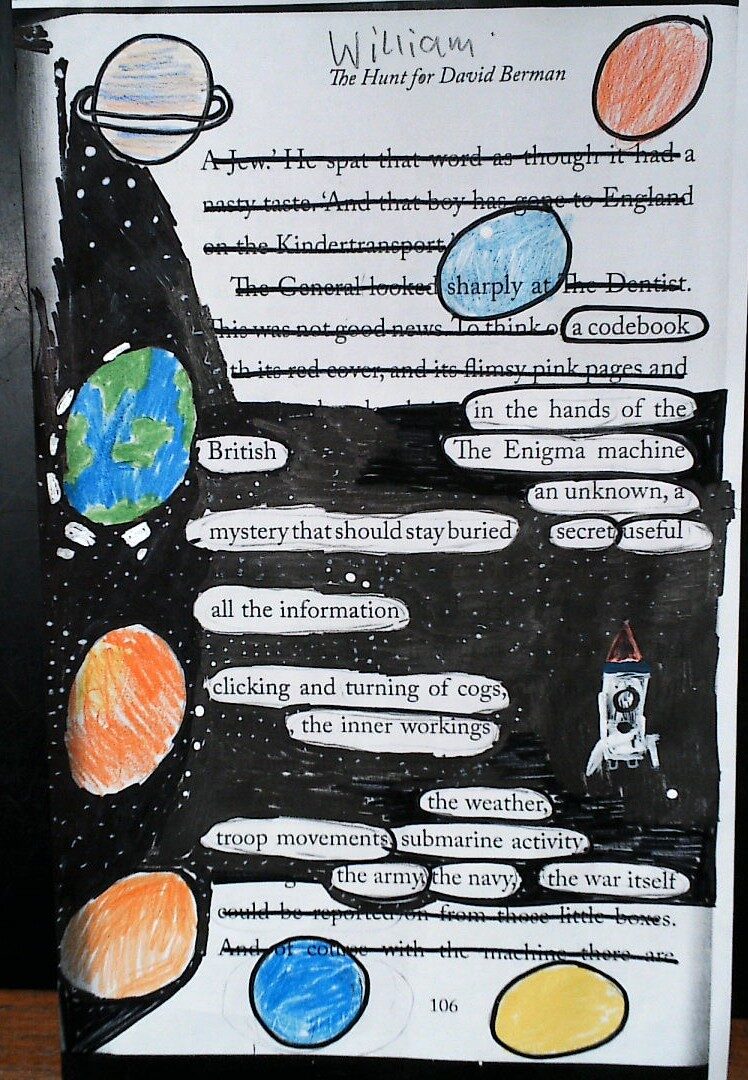 William.
The Hunt for David Berman
A Jew.' He spat that word as though it had a
nasty taste. 'And that boy has gone to England
on the Kindertransport.'
The General looked sharply at The Dentist.
This was not good news. To think of a codebook
th its red cover, and its flimsy pink pages and
in the hands of the
British The Enigma machine
an unknown, a
mystery that should stay buried secret useful
all the information
clicking and turning of cogs,
, the inner workings
the weather,
troop movements, submarine activity,
the army, the navy, the war itself
could be reported on from those little boxes.
And, of course with the machine there are
106